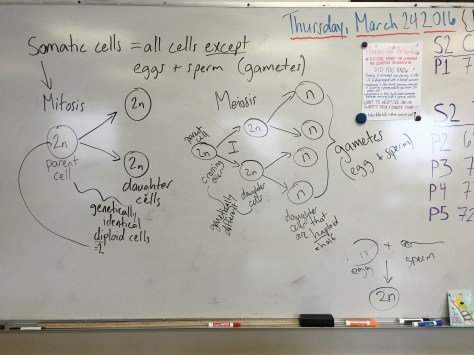 Thursday, March 24 2016
Somatic cells = all cells except
eggs + sperm (gametes)
Mitosis
2n
2n
parent
cell
2n
daughter
cells
genetically
identical
diploid cells
=2
Meiosis
parent
cell
2n
crossing
over
I
2n
2n
daughter
cells
genetically
different
n
n
n
n
daughter
cells that
are haploid
=half
gametes
(egg + sperm)
n
egg
+
sperm
2n
DID YOU KNOW
S2
P1
S2
P2
P3
P4
P5